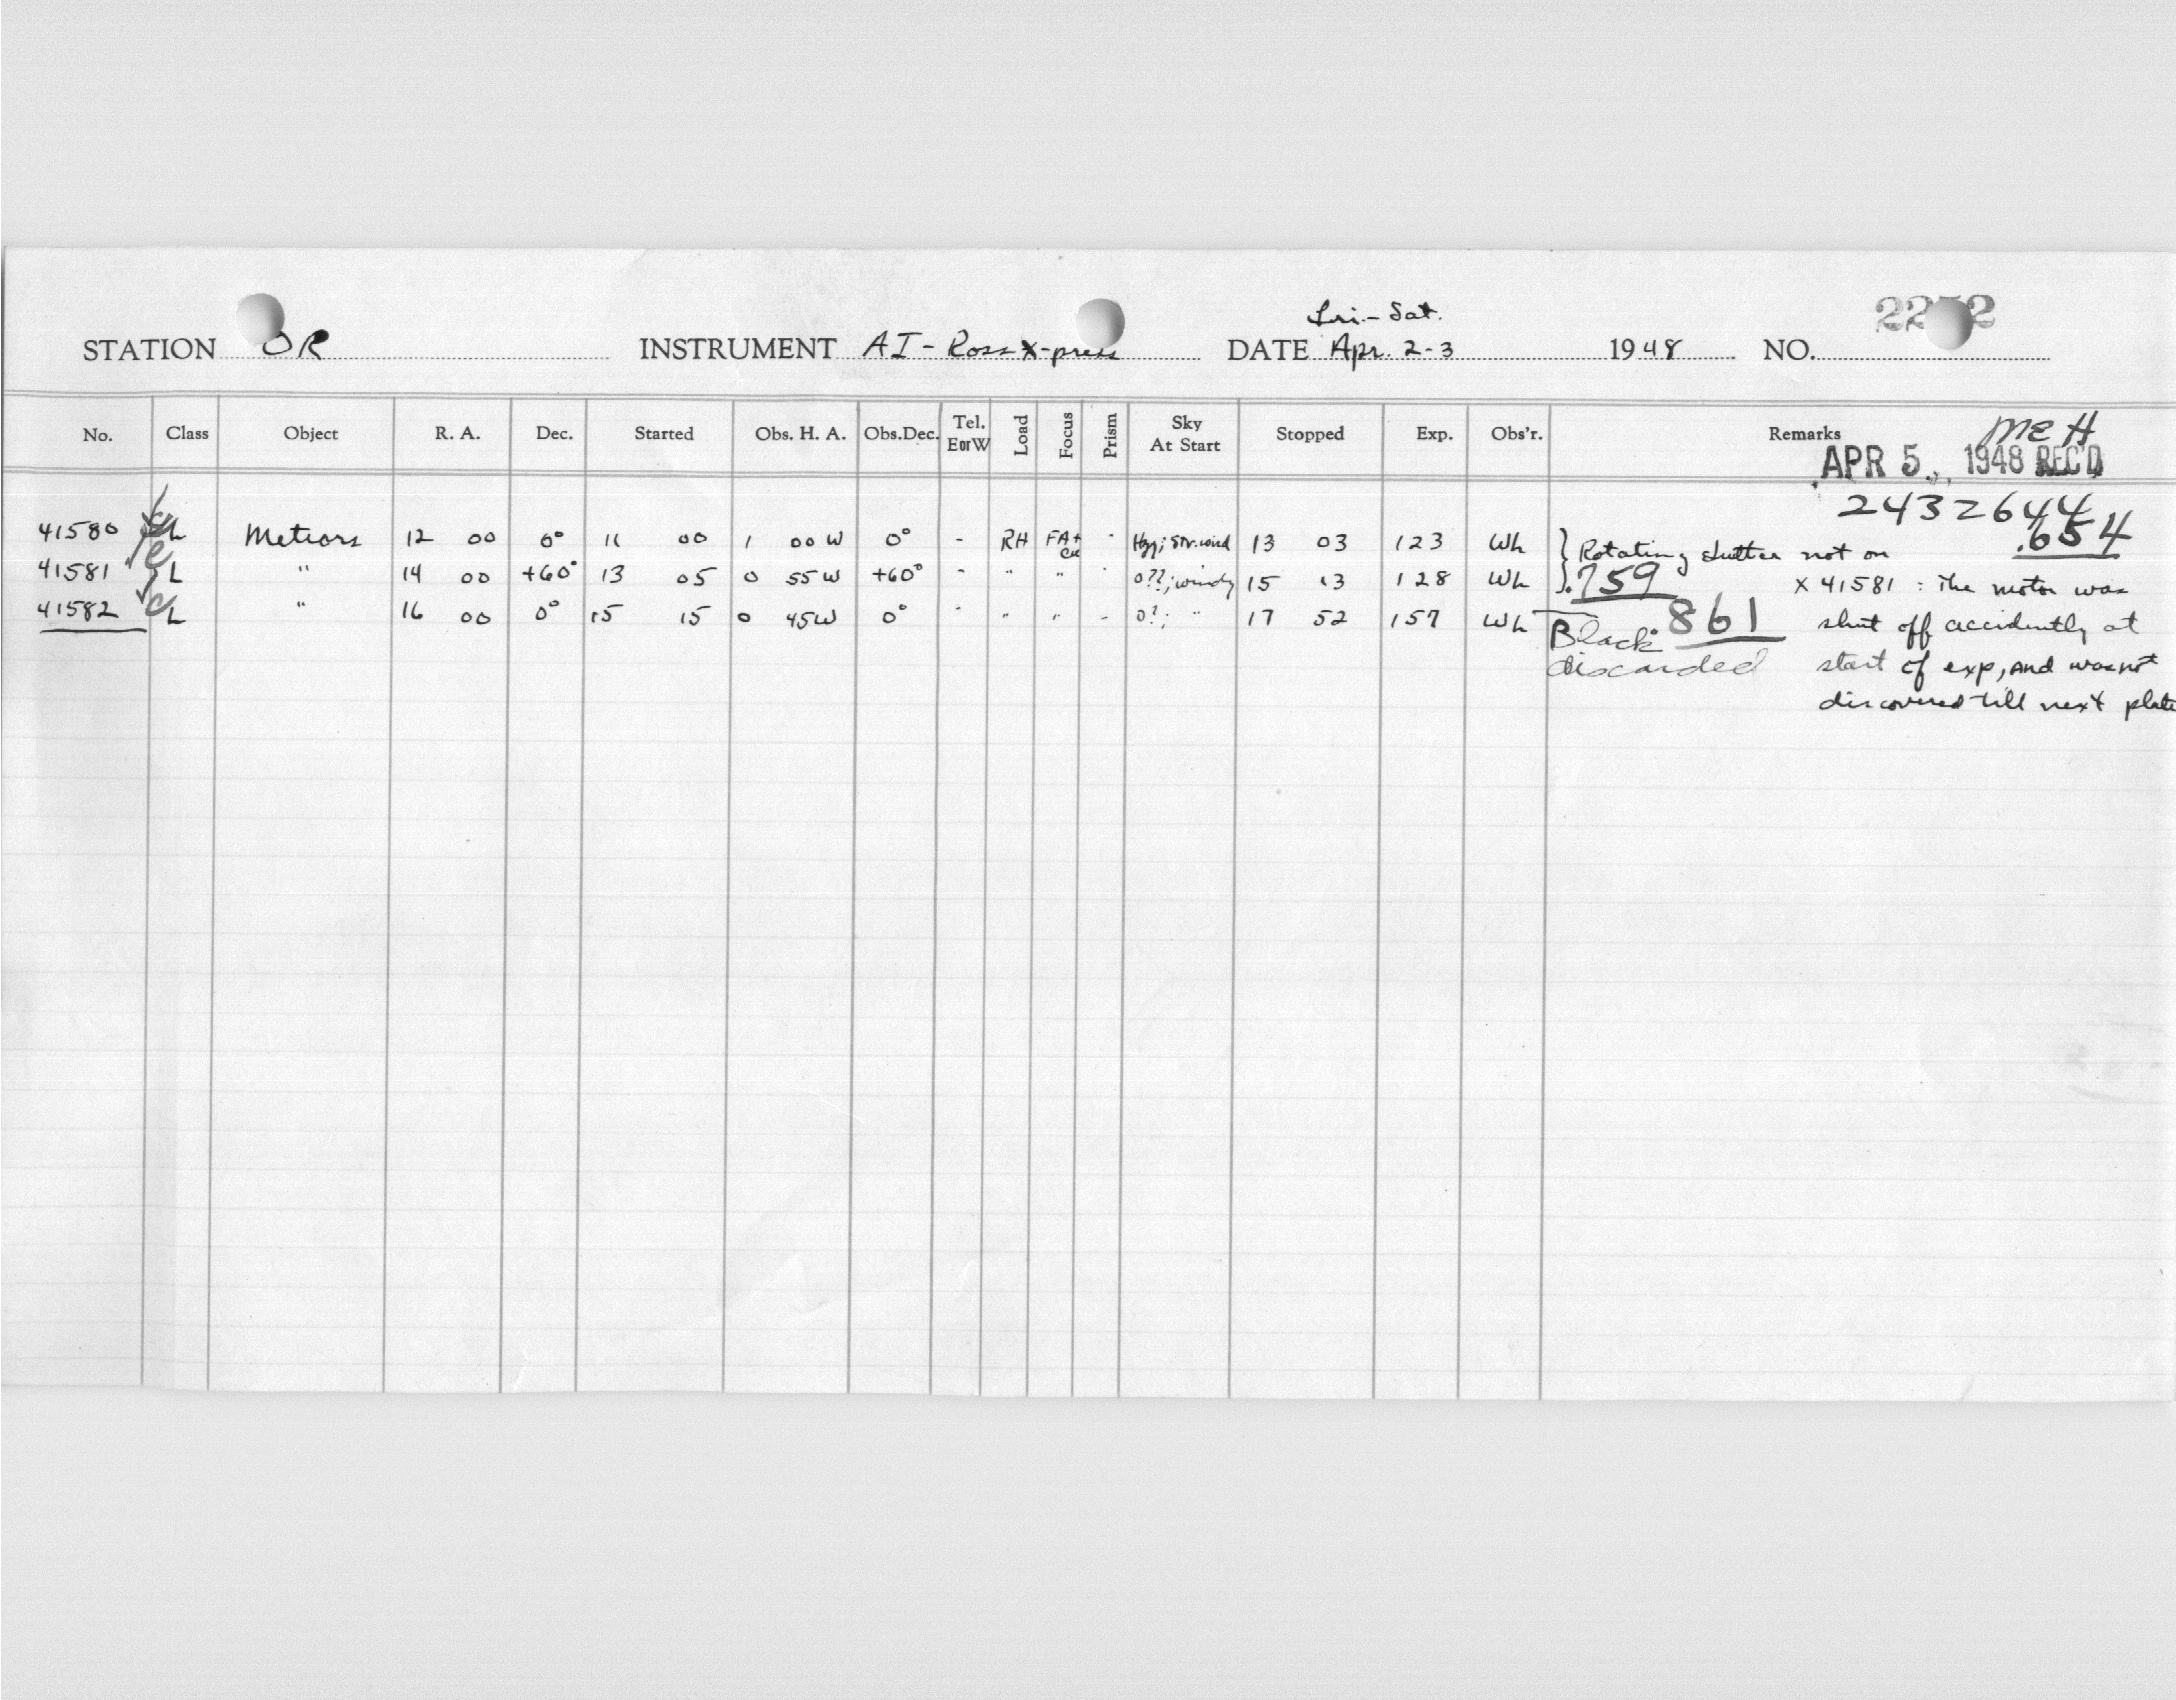 Fri.- Sat.
STATION OR INSTRUMENT AI- Ross X-press DATE Apr. 2-3 1948 NO.
No. Class Object R. A. Dec. Started Obs. H. A. Obs.Dec. Tel. E or W Load Focus Prism Sky At Start Stopped Exp. Obs'r. Remarks
MEH
APR 5, 1948 REC'D
2432644
.654
41580 L Meteors 12 00 0° 11 00 1 00 W 0° - RH FA+ Cu - Hzy; Str. wind 13 03 123 Wh } Rotating shutter not on
41581 L " 14 00 +60° 13 05 0 55 W +60° - " " - 0??; windy 15 13 128 Wh } .759 X 41581 : The motor was
41582 L " 16 00 0° 15 15 0 45W 0° - " " - 0?; " 17 52 157 Wh 861 shut off accidently at
Black discarded start of exp, and was not
discovered till next plate